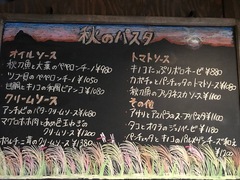 秋のパスタ
オイルソース
秋刀魚と大葉のペペロンチーノ ¥980
ツブ貝のペペロンチーノ ¥1050
と きのこの和風ピアンコ ¥1080
クリームソース
アンチョビのバタークリームソース ¥1200
クリームソース ¥1200
ポルチーニ茸のクリームソース ¥1380
トマトソース
キノコたっぷりボロネーゼ ¥880
カボチャとパンチェッタのトマトソース ¥980
秋刀魚のプッタネスカソース ¥1000
その他
アサリとアスパラのスープパスタ ¥1100
タコとオクラのジェノベーゼ ¥1180
パンチェッタときのこのパルメザンチーズ